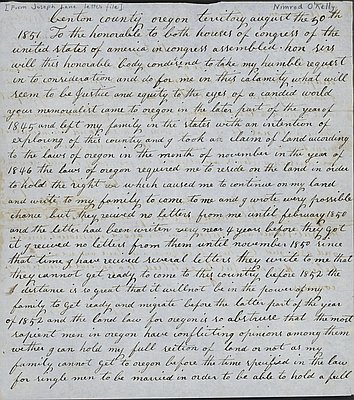 [From Joseph Lane letter file]
Nimrod O'Kelly
Benton county oregon territory august the 30th
1851. To the honorable to both houses of congress of the
united states of america in congress assembled hon sers
will this honorable body condesend to take my humble request
in to consideration and do for me in this calamity what will
seem to be Justice and equity to the eyes of a canded world
your memorialist came to oregon in the later part of the year of
1845 and left my family in the states with an intention of
exploring of this country and g took a claim of land according
to the laws of oregon in the month of november in the year of
1846 the laws of oregon required me to reside on the land in order
to hold the right which caused me to continue on my land
and write to my family to come to me and g wrote evry possible
chance but they recived no letters from me until february 1850
and the letter had been writen very near 4 years before they got
it g recived no letters from them until november 1850 since
that time g have recived several letters they write to me that
they cannot get ready to come to this country before 1852 the
distance is so great that it will not be in the power of my
family to get ready and migrate before the latter part of the year
of 1852 and the land law for oregon is so abstruse that the most
sapient men in oregon have conflicting opinions among them
wether g can hold my full section of land or not as my
family cannot get to oregon before the time specified in the law
for single men to be married in order to be able to hold a full